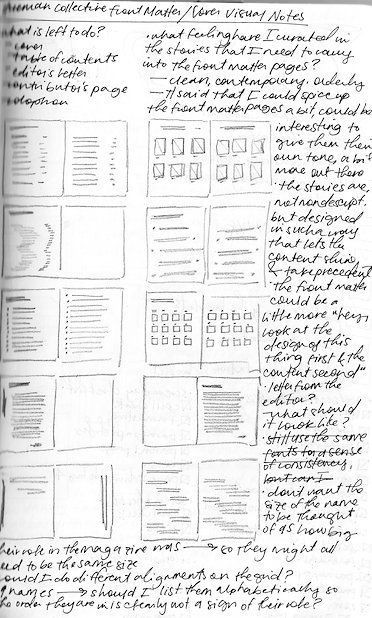 Human Collective Front Matter/Cover Visual Notes
what is left to do?
cover
table of contents
editor's letter
contributor's page
colophon
• what feeling have I curated in
the stories that I need to carry
into the front matter pages?
— clean, contemporary, orderly
— said that I could spice up
the front matter pages a bit, could be
interesting to
give them their
own tone, a bit
more out there
• the stories are,
not nondescript,
but designed
in such a way
that lets the
content shine
& take precedent
the front matter
could be a
little more "hey,
look at the
design of this
thing first & the
content second"
letter from the
editor?
- what should
it look like?
still use the same
fonts for a sense
of consistency,
but can I
• don't want the
size of the name
to be thought
of as how big
their role in the magazine was → so they might all
need to be the same size
could I do different alignments on the grid?
names → should I list them alphabetically so
the order they are in is clearly not a sign of their role?